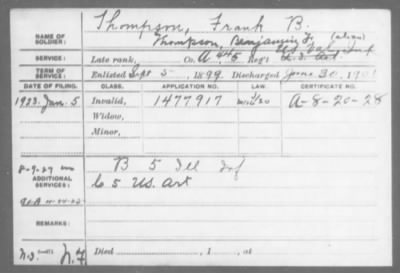 NAME OF SOLDIER: Thompson, Frank B.
Thompson, Benjamin F. (alias)
US Vol Inf
SERVICE: Late rank, Co. A 45 Reg't U.S. Art.
TERM OF SERVICE: Enlisted Sept 5 1899, Discharged June 30, 1901
DATE OF FILING. CLASS. APPLICATION NO. LAW. CERTIFICATE NO.
1923 Jan. 5 Invalid, 1477917 A-8-20-28
Widow,
Minor,
8-9-27
ADDITIONAL SERVICES: B 5 Ill Inf
6 5 US. Art
REMARKS:
Died , 1 , at